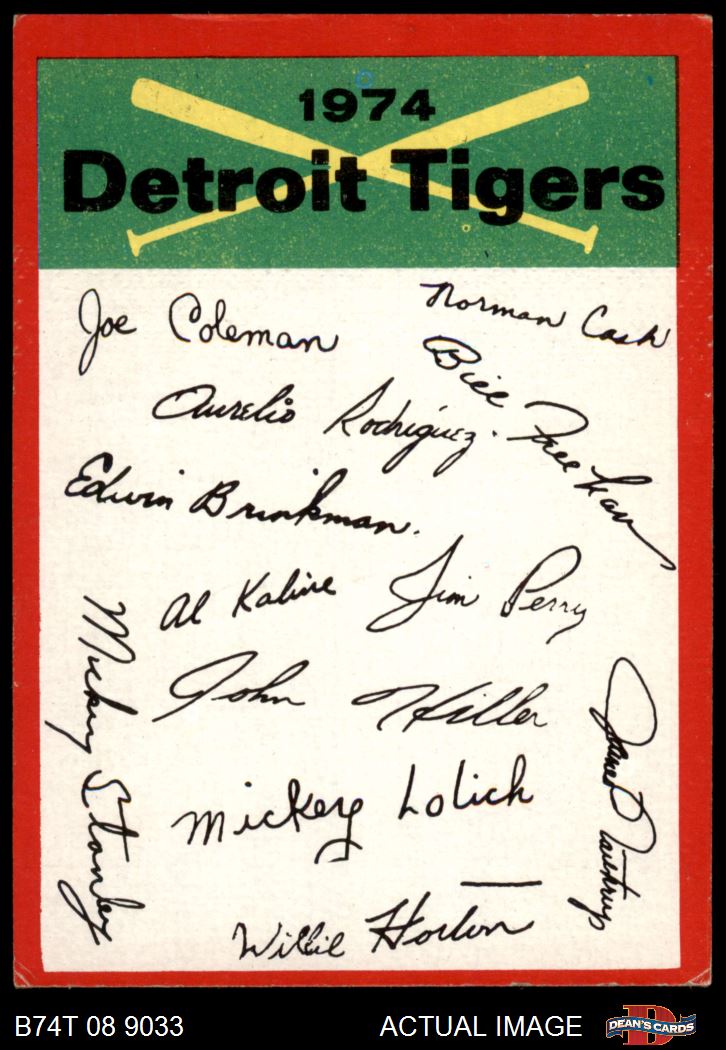 1974
Detroit Tigers
Joe Coleman
Norman Cash
Bill Freehan
Aurelio Rodriguez.
Edwin Brinkman.
Al Kaline
Jim Perry
Mickey Stanley
John Hiller
James Northrup
Mickey Lolich
Willie Horton
B74T 08 9033
ACTUAL IMAGE
D
DEAN'S CARDS